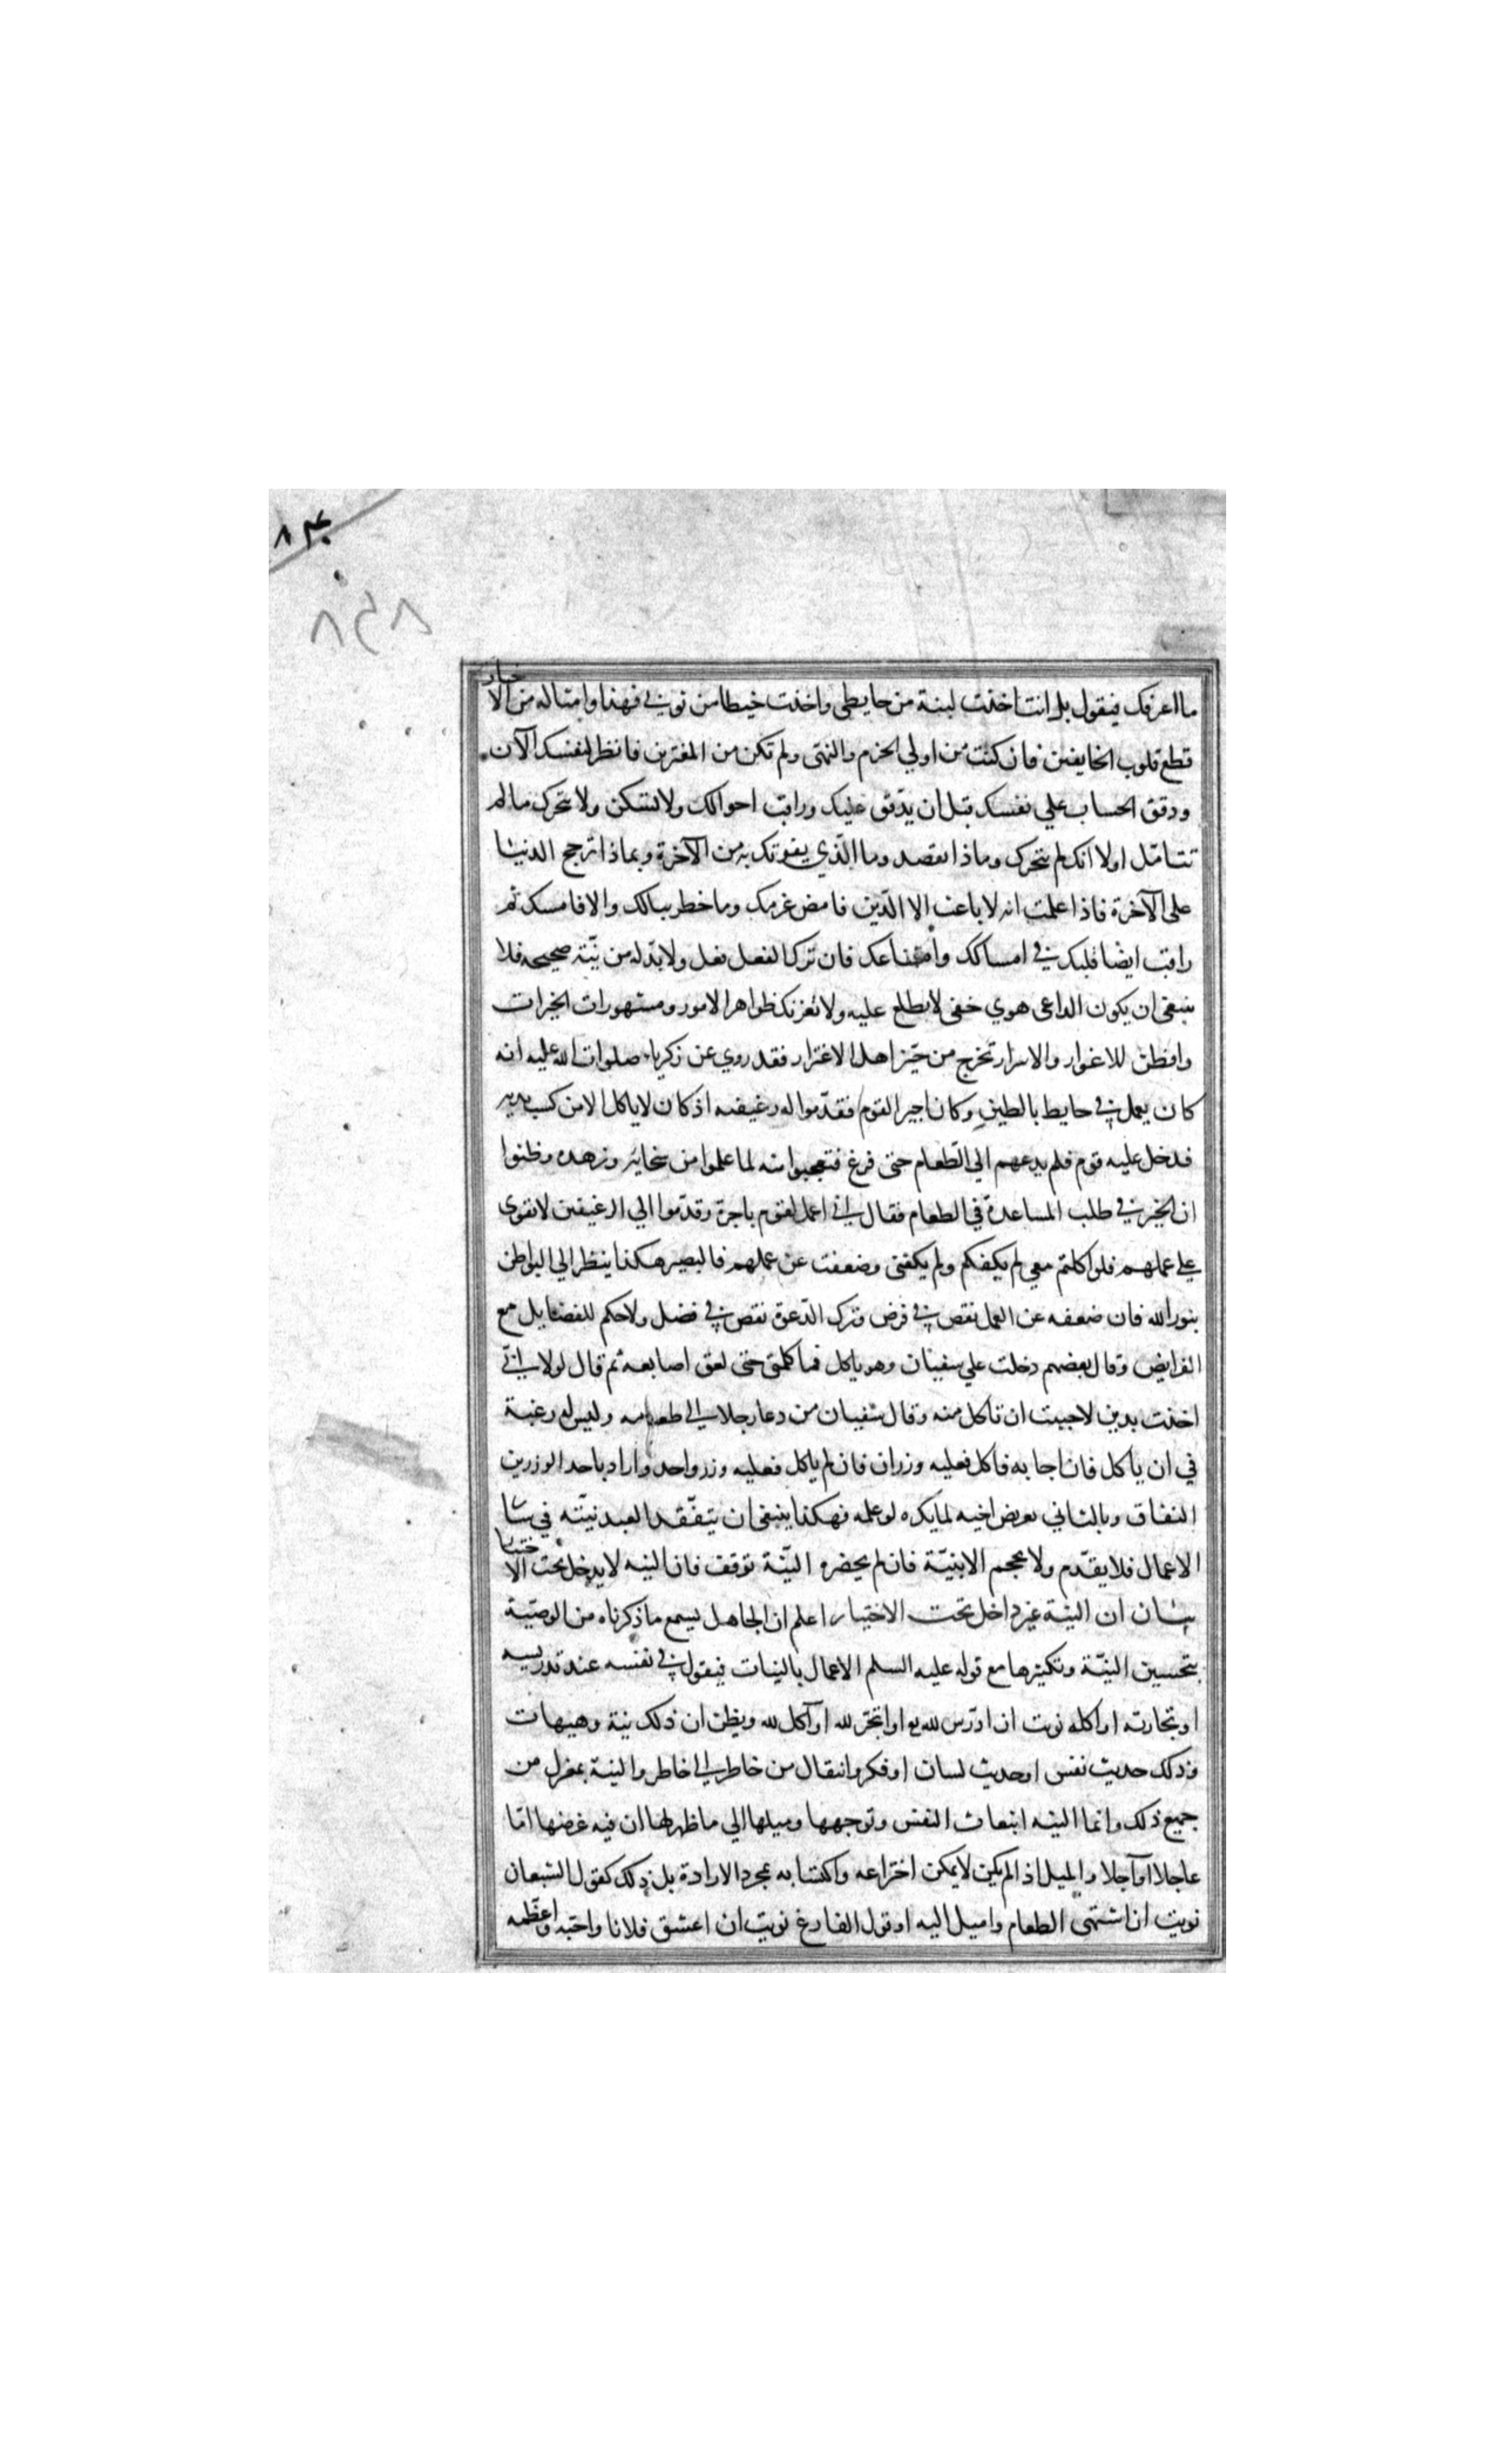 ٨٣٠
٨٤٨
ما اعرفك فيقول بل انت اخذت لبنة من حايطى واخذت خيطا من ثوبي فهذا وامثاله من الاخبار
قطع قلوب الخايفين فان كنت من اولي الحزم والنهى ولم تكن من المغترين فانظر لنفسك الآن
ودقق الحساب علي نفسك قبل ان يدّقق عليك وراقب احوالك ولا تسكن ولا تتحرك ما لم
تتامّل اولا انك لم تتحرك وماذا تقصد وما الّذي يفوتك به من الآخرة وبماذا ترجح الدنيا
على الآخرة فاذا علمت انه لا باعث الا الدّين فامض عزمك وما خطر ببالك والا فامسك ثم
راقب ايضا قلبك في امساكك وامتناعك فان ترك الفعل فعل ولا بدّ له من نيّة صحيحه فلا
ينبغى ان يكون الداعى هوي خفى لا يطلع عليه ولا تغرنك ظواهر الامور ومشهورات الخيرات
وافطن للاغوار والاسرار تخرج من حيّز اهل الاغترار فقد روي عن زكرياء صلوات الله عليه انه
كان يعمل في حايط بالطين وكان اجير القوم فقدّموا له رغيفه اذ كان لا ياكل الا من كسب يديه
فدخل عليه قوم فلم يدعهم الي الطّعام حتى فرغ فتعجبوا منه لما علموا من سخايه وزهده وظنوا
ان الخير في طلب المساعدة في الطعام فقال اني اعمل لقوم باجرة وقدّموا الي الرغيفين لاتقوى
على عملهم فلو اكلتم معي لم يكفكم ولم يكفنى وضعفت عن عملهم فالبصير هكذا ينظر الي البواطن
بنور الله فان ضعفه عن العمل نقص في فرض وترك الدّعوة نقص في فضل ولا حكم للفضايل مع
الفرايض وقال بعضهم دخلت علي سفيان وهو ياكل فما كلمنى حتى لعق اصابعه ثم قال لولا انّي
اخذت بدين لاحببت ان تاكل منه وقال سفيان من دعا رجلا الى طعامه وليس له رغبة
في ان ياكل فان اجابه فاكل فعليه وزران فان لم ياكل فعليه وزر واحد واراد باحد الوزرين
النفاق وبالثاني تعريض اخيه لما يكره لو علمه فهكذا ينبغى ان يتفّقد العبد نيّته في سا
الاعمال فلا يقدّم ولا يحجم الا بنيّة فان لم يحضره النيّة توقف فان النيه لا يدخل تحت الاختيار
بيان ان النية غير داخل تحت الاختيار اعلم ان الجاهل يسمع ما ذكرناه من الوصيّة
بتحسين النيّة وتكثيرها مع قوله عليه السلم الاعمال بالنيات فيقول في نفسه عند تدريسه
او تجارته او اكله نويت ان ادرّس لله او اتجّر لله او آكل لله ويظن ان ذلك نية وهيهات
فذلك حديث نفس او حديث لسان او فكر وانتقال من خاطر الى خاطر والنية بمعزل من
جميع ذلك وانما النيه انبعاث النفس وتوجهها وميلها الي ما ظهر لها ان فيه غرضها امّا
عاجلا او آجلا والميل اذا لم يكن لا يمكن اختراعه واكتسابه بمجرد الارادة بل ذلك كقول الشبعان
نويت ان اشتهى الطعام واميل اليه او قول الفارغ نويت ان اعشق فلانا واحبّه واعظّمه